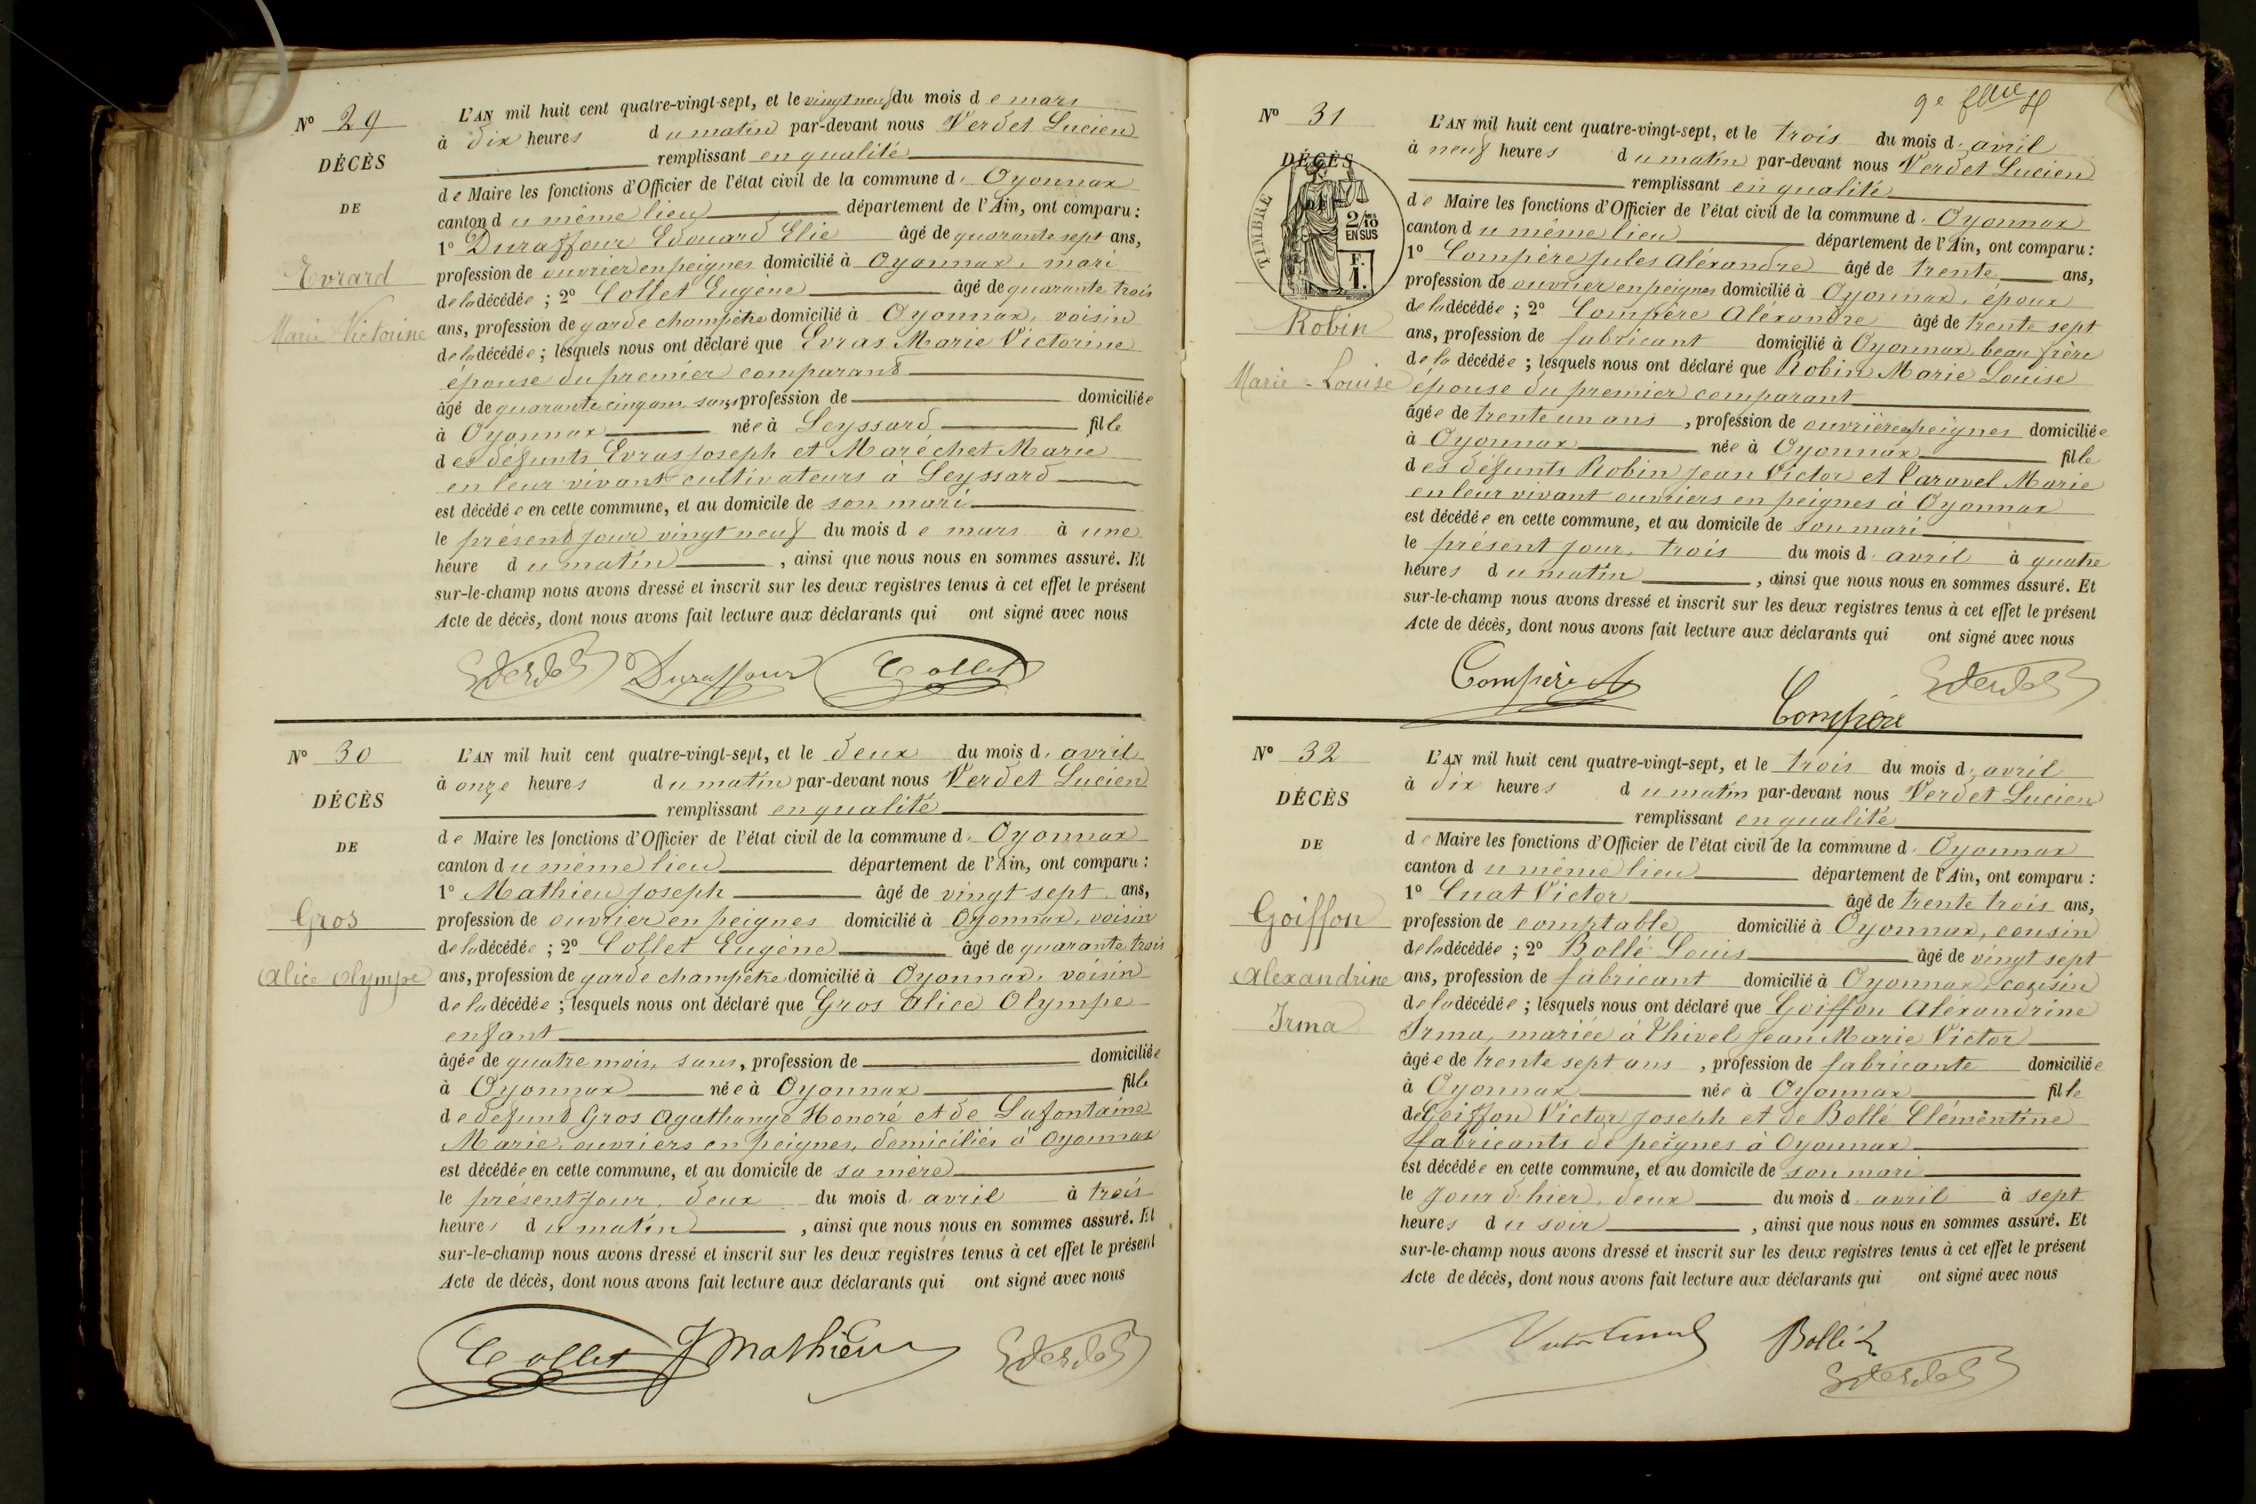 N° 29
DÉCÈS
DE
Evrard
Marie Victorine
L'AN mil huit cent quatre-vingt-sept, et le vingt neuf du mois de mars
à dix heures du matin par-devant nous Verdet Lucien
remplissant en qualité
de Maire les fonctions d'Officier de l'état civil de la commune d'Oyonnax
canton du même lieu département de l'Ain, ont comparu :
1° Duraffour Edouard Elie âgé de quarante sept ans,
profession de ouvrier en peignes domicilié à Oyonnax, mari
de la décédée ; 2° Collet Eugène âgé de quarante trois
ans, profession de garde champêtre domicilié à Oyonnax, voisin
de la décédée ; lesquels nous ont déclaré que Evras Marie Victorine
épouse du premier comparant
âgé de quarante cinq ans, sans profession de domiciliée
à Oyonnax née à Leyssard fille
des défunts Evras Joseph et Maréchet Marie
en leur vivant cultivateurs à Leyssard
est décédée en cette commune, et au domicile de son mari
le présent jour vingt neuf du mois de mars à une
heure du matin , ainsi que nous nous en sommes assuré. Et
sur-le-champ nous avons dressé et inscrit sur les deux registres tenus à cet effet le présent
Acte de décès, dont nous avons fait lecture aux déclarants qui ont signé avec nous
Verdet Duraffour Collet
N° 30
DÉCÈS
DE
Gros
Alice Olympe
L'AN mil huit cent quatre-vingt-sept, et le deux du mois d'avril
à onze heures du matin par-devant nous Verdet Lucien
remplissant en qualité
de Maire les fonctions d'Officier de l'état civil de la commune d'Oyonnax
canton du même lieu département de l'Ain, ont comparu :
1° Mathieu Joseph âgé de vingt sept ans,
profession de ouvrier en peignes domicilié à Oyonnax, voisin
de la décédée ; 2° Collet Eugène âgé de quarante trois
ans, profession de garde champêtre domicilié à Oyonnax, voisin
de la décédée ; lesquels nous ont déclaré que Gros Alice Olympe
enfant
âgée de quatre mois, sans, profession de domiciliée
à Oyonnax née à Oyonnax fille
de défunt Gros Agathange Honoré et de Lafontaine
Marie, ouvriers en peignes, domiciliés à Oyonnax
est décédée en cette commune, et au domicile de sa mère
le présent jour, deux du mois d'avril à trois
heures du matin , ainsi que nous nous en sommes assuré. Et
sur-le-champ nous avons dressé et inscrit sur les deux registres tenus à cet effet le présent
Acte de décès, dont nous avons fait lecture aux déclarants qui ont signé avec nous
Collet J Mathieu Verdet
9e flle
N° 31
DÉCÈS
DE
TIMBRE
2/10 EN SUS
F. 1.
Robin
Marie-Louise
L'AN mil huit cent quatre-vingt-sept, et le trois du mois d'avril
à neuf heures du matin par-devant nous Verdet Lucien
remplissant en qualité
de Maire les fonctions d'Officier de l'état civil de la commune d'Oyonnax
canton du même lieu département de l'Ain, ont comparu :
1° Compère Jules Aléxandre âgé de trente ans,
profession de ouvrier en peignes domicilié à Oyonnax, époux
de la décédée ; 2° Compère Aléxandre âgé de trente sept
ans, profession de fabricant domicilié à Oyonnax beau frère
de la décédée ; lesquels nous ont déclaré que Robin Marie Louise
épouse du premier comparant
âgée de trente un ans , profession de ouvrière en peignes domiciliée
à Oyonnax née à Oyonnax fille
des défunts Robin Jean Victor et Taravel Marie
en leur vivant ouvriers en peignes à Oyonnax
est décédée en cette commune, et au domicile de son mari
le présent jour, trois du mois d'avril à quatre
heures du matin , ainsi que nous nous en sommes assuré. Et
sur-le-champ nous avons dressé et inscrit sur les deux registres tenus à cet effet le présent
Acte de décès, dont nous avons fait lecture aux déclarants qui ont signé avec nous
Compère A Verdet
Compère
N° 32
DÉCÈS
DE
Goiffon
Alexandrine
Irma
L'AN mil huit cent quatre-vingt-sept, et le trois du mois d'avril
à dix heures du matin par-devant nous Verdet Lucien
remplissant en qualité
de Maire les fonctions d'Officier de l'état civil de la commune d'Oyonnax
canton du même lieu département de l'Ain, ont comparu :
1° Cuat Victor âgé de trente trois ans,
profession de comptable domicilié à Oyonnax, cousin
de la décédée ; 2° Bollé Louis âgé de vingt sept
ans, profession de fabricant domicilié à Oyonnax, cousin
de la décédée ; lesquels nous ont déclaré que Goiffon Aléxandrine
Irma, mariée à Thivel Jean Marie Victor
âgée de trente sept ans , profession de fabricante domiciliée
à Oyonnax née à Oyonnax fille
de Goiffon Victor Joseph et de Bollé Clémentine
fabricants de peignes à Oyonnax
est décédée en cette commune, et au domicile de son mari
le jour d'hier, deux du mois d'avril à sept
heures du soir , ainsi que nous nous en sommes assuré. Et
sur-le-champ nous avons dressé et inscrit sur les deux registres tenus à cet effet le présent
Acte de décès, dont nous avons fait lecture aux déclarants qui ont signé avec nous
Bollé L
Verdet